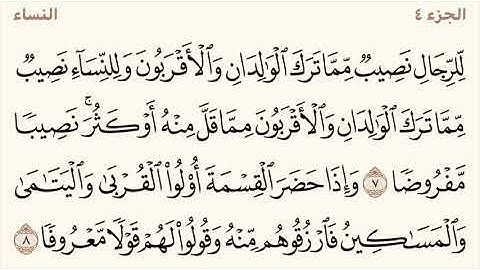 الجزء ٤ النساء
لِّلرِّجَالِ نَصِيبٌ مِّمَّا تَرَكَ الْوَالِدَانِ وَالْأَقْرَبُونَ وَلِلنِّسَاءِ نَصِيبٌ
مِّمَّا تَرَكَ الْوَالِدَانِ وَالْأَقْرَبُونَ مِمَّا قَلَّ مِنْهُ أَوْ كَثُرَ ۚ نَصِيبًا
مَّفْرُوضًا ٧ وَإِذَا حَضَرَ الْقِسْمَةَ أُولُوا الْقُرْبَىٰ وَالْيَتَامَىٰ
وَالْمَسَاكِينُ فَارْزُقُوهُم مِّنْهُ وَقُولُوا لَهُمْ قَوْلًا مَّعْرُوفًا ٨